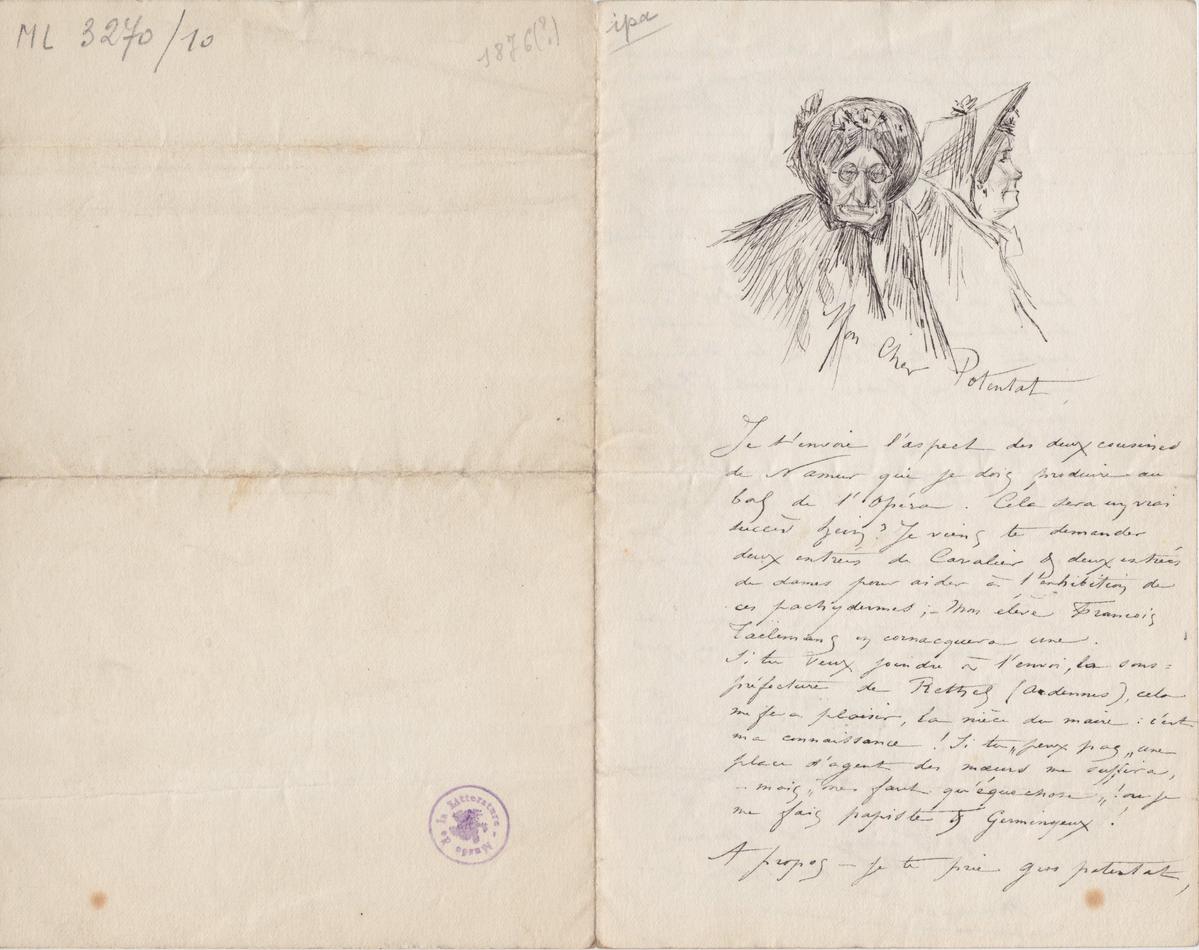 ML 3270/10
1876(?)
Musée de la Littérature -
ipa
Mon Cher Potentat
Je t'envoie l'aspect des deux cousines
de Namur que je dois produire au
bal de l'Opéra. Cela sera un vrai
succès hein? Je viens te demander
deux entrées de Cavalier & deux entrées
de dames pour aider à l'exhibition de
ces pachydermes ; - Mon élève François
Taelemans en cornacquera une.
Si tu veux joindre à l'envoi, la sous=
préfecture de Rethel (Ardennes), cela
me fera plaisir, la nièce du maire : c'est
ma connaissance ! Si tu „peux pas„ une
place d'agent des mœurs me suffira,
- mais „me faut qu'équechose„ ! ou je
me fais papiste & Germingeux !
A propos - je te prie gros potentat,